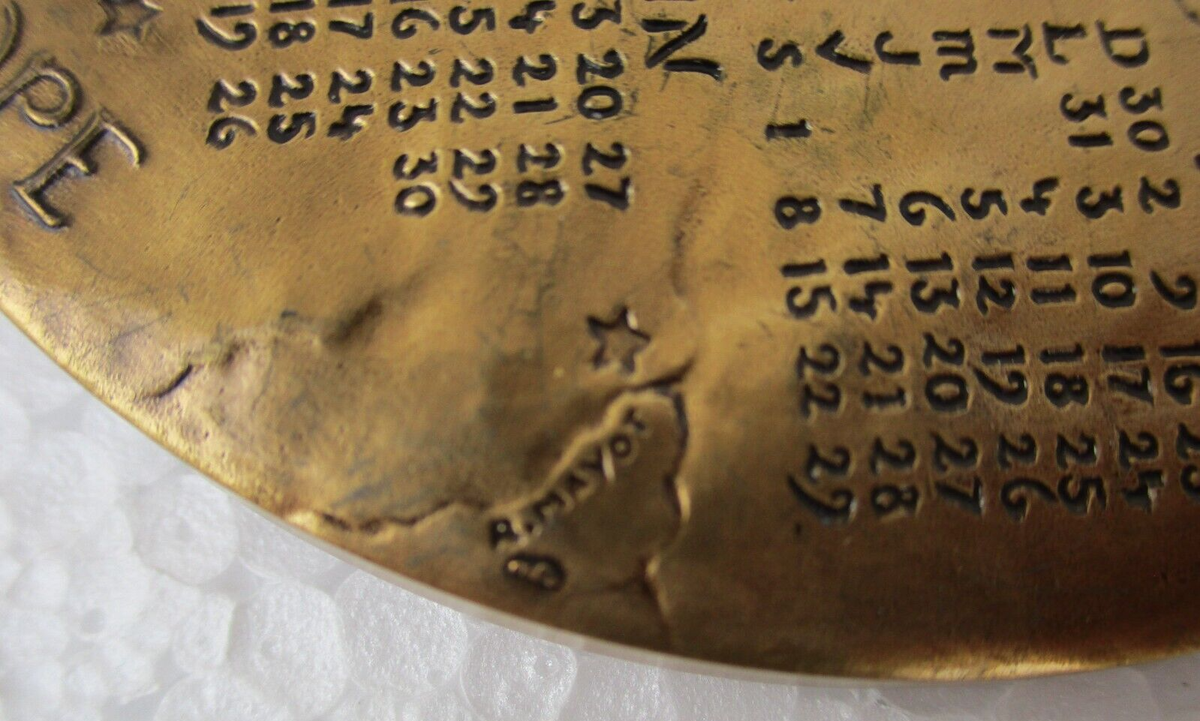 D 30 2 9 16 23
L 31 3 10 17 24
M 4 11 18 25
m 5 12 19 26
J 6 13 20 27
V 7 14 21 28
S 1 8 15 22 29
IN
3 20 27
4 21 28
5 22 29
16 23 30
17 24
18 25
19 26
OPE
R.MAYOT